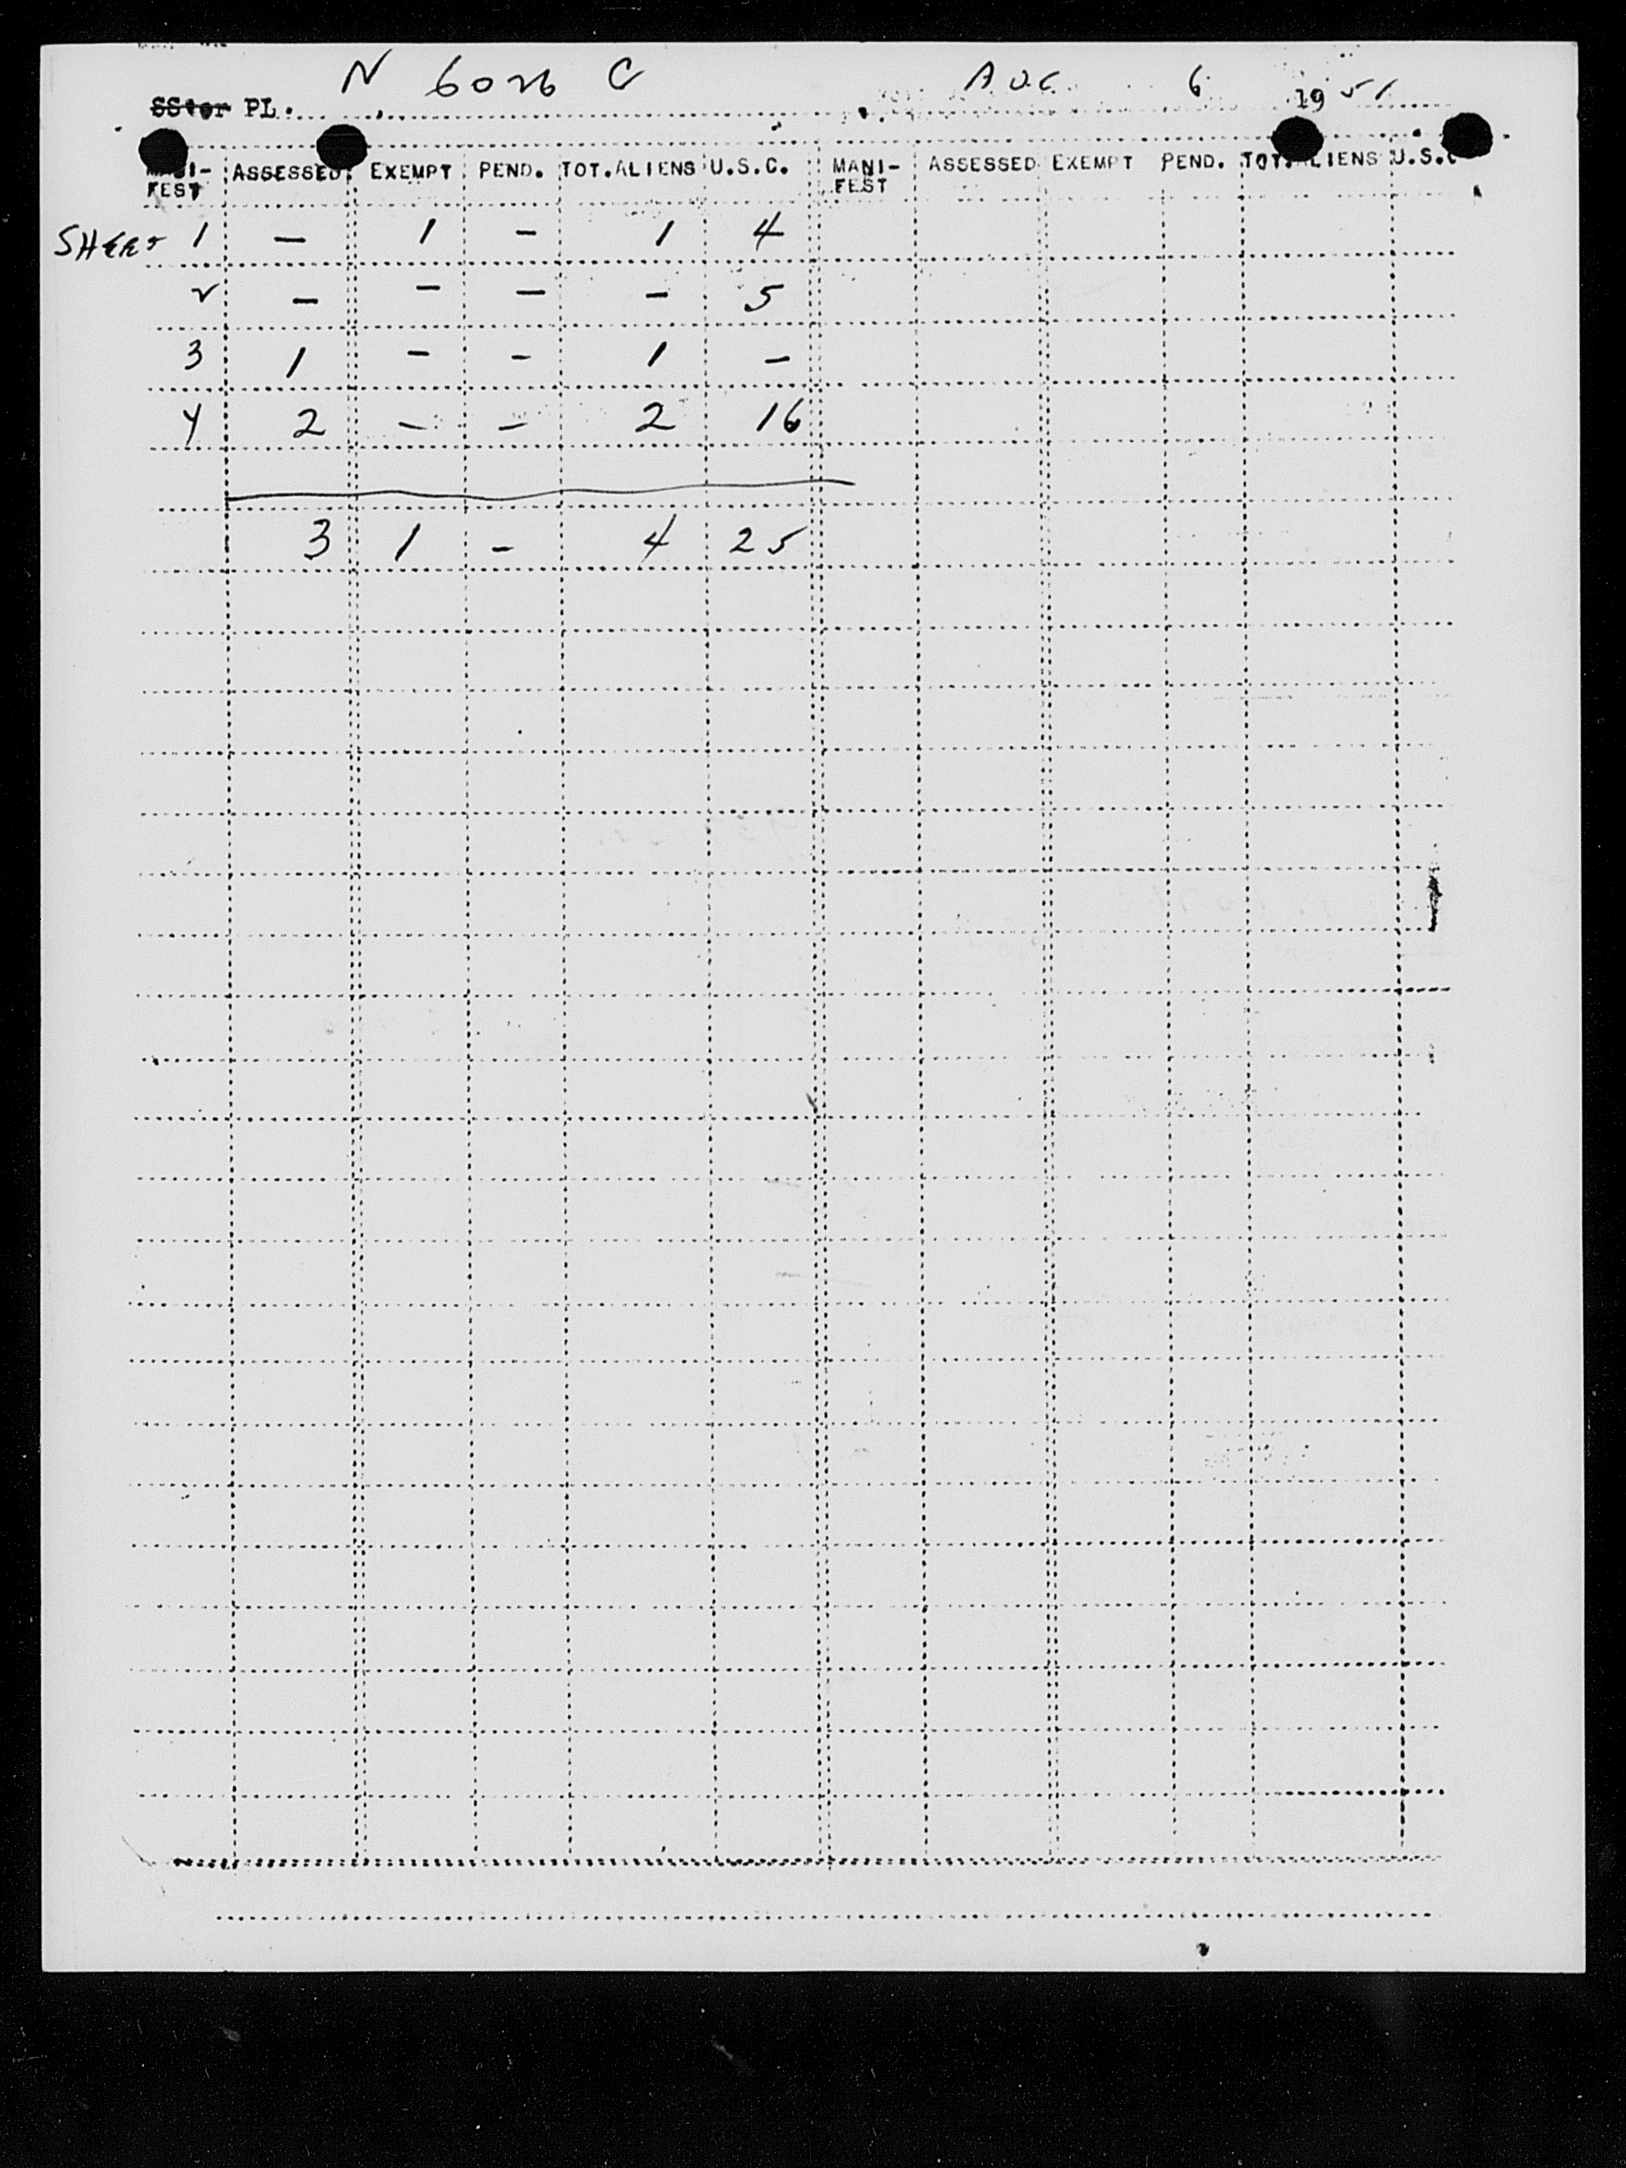 N 6026 C AUG 6 1951
SS or PL.
MANI- ASSESSED EXEMPT PEND. TOT.ALIENS U.S.C. MANI- ASSESSED EXEMPT PEND. TOT.ALIENS U.S.C
FEST FEST
SHEET 1 — 1 — 1 4
2 — — — — 5
3 1 — — 1 —
4 2 — — 2 16
3 1 — 4 25